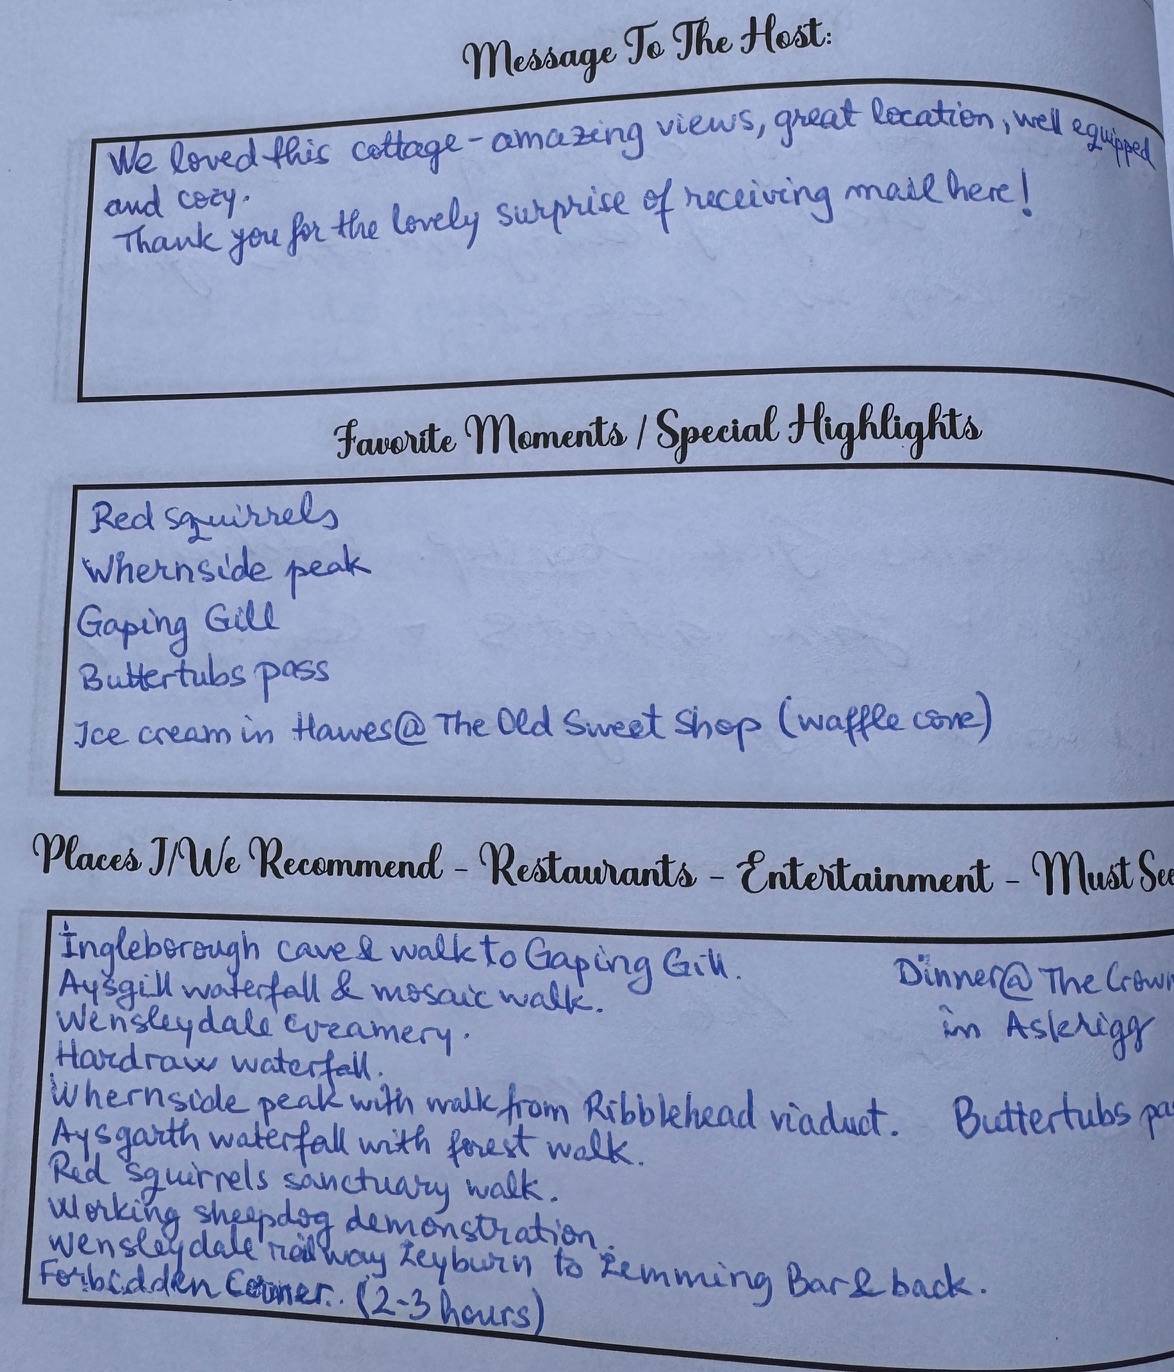 Message To The Host:
We loved this cottage - amazing views, great location, well equipped
and cozy.
Thank you for the lovely surprise of receiving mail here!
Favorite Moments / Special Highlights
Red squirrels
Whernside peak
Gaping Gill
Buttertubs pass
Ice cream in Hawes @ The Old Sweet Shop (waffle cone)
Places I/We Recommend - Restaurants - Entertainment - Must See
Ingleborough cave & walk to Gaping Gill.
Aysgill waterfall & mosaic walk.
Wensleydale creamery.
Hardraw waterfall.
Whernside peak with walk from Ribblehead viaduct.
Aysgarth waterfall with forest walk.
Red squirrels sanctuary walk.
Working sheepdog demonstration.
Wensleydale railway Leyburn to Lemming Bar & back.
Forbidden Corner. (2-3 hours)
Dinner @ The Crown
in Askrigg
Buttertubs pa